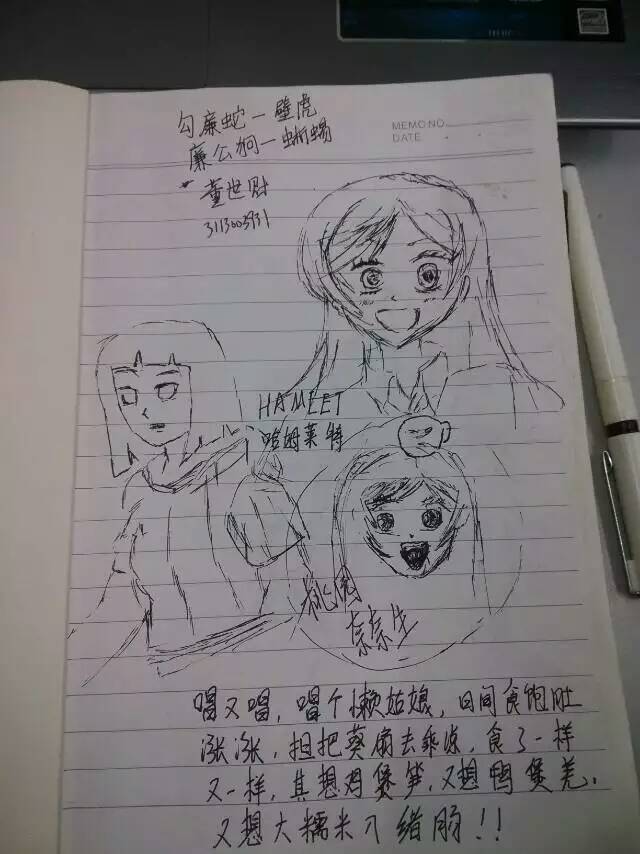 勾廉蛇一壁虎
廉公狗一蜥蜴
董世财
3113003931
MEMO NO.
DATE
HAMEET
哈姆莱特
桃园
奈奈生
唱又唱，唱个懒姑娘，日间食饱肚
涨涨，担把葵扇去乘凉，食了一样
又一样，其想鸡煲笋，又想鸭煲羌，
又想大糯米刀绪肠！！